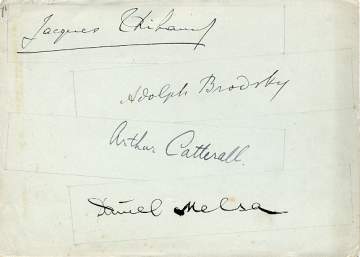 Jacques Thibaud
Adolph Brodsky
Arthur Catterall.
Daniel Melsa